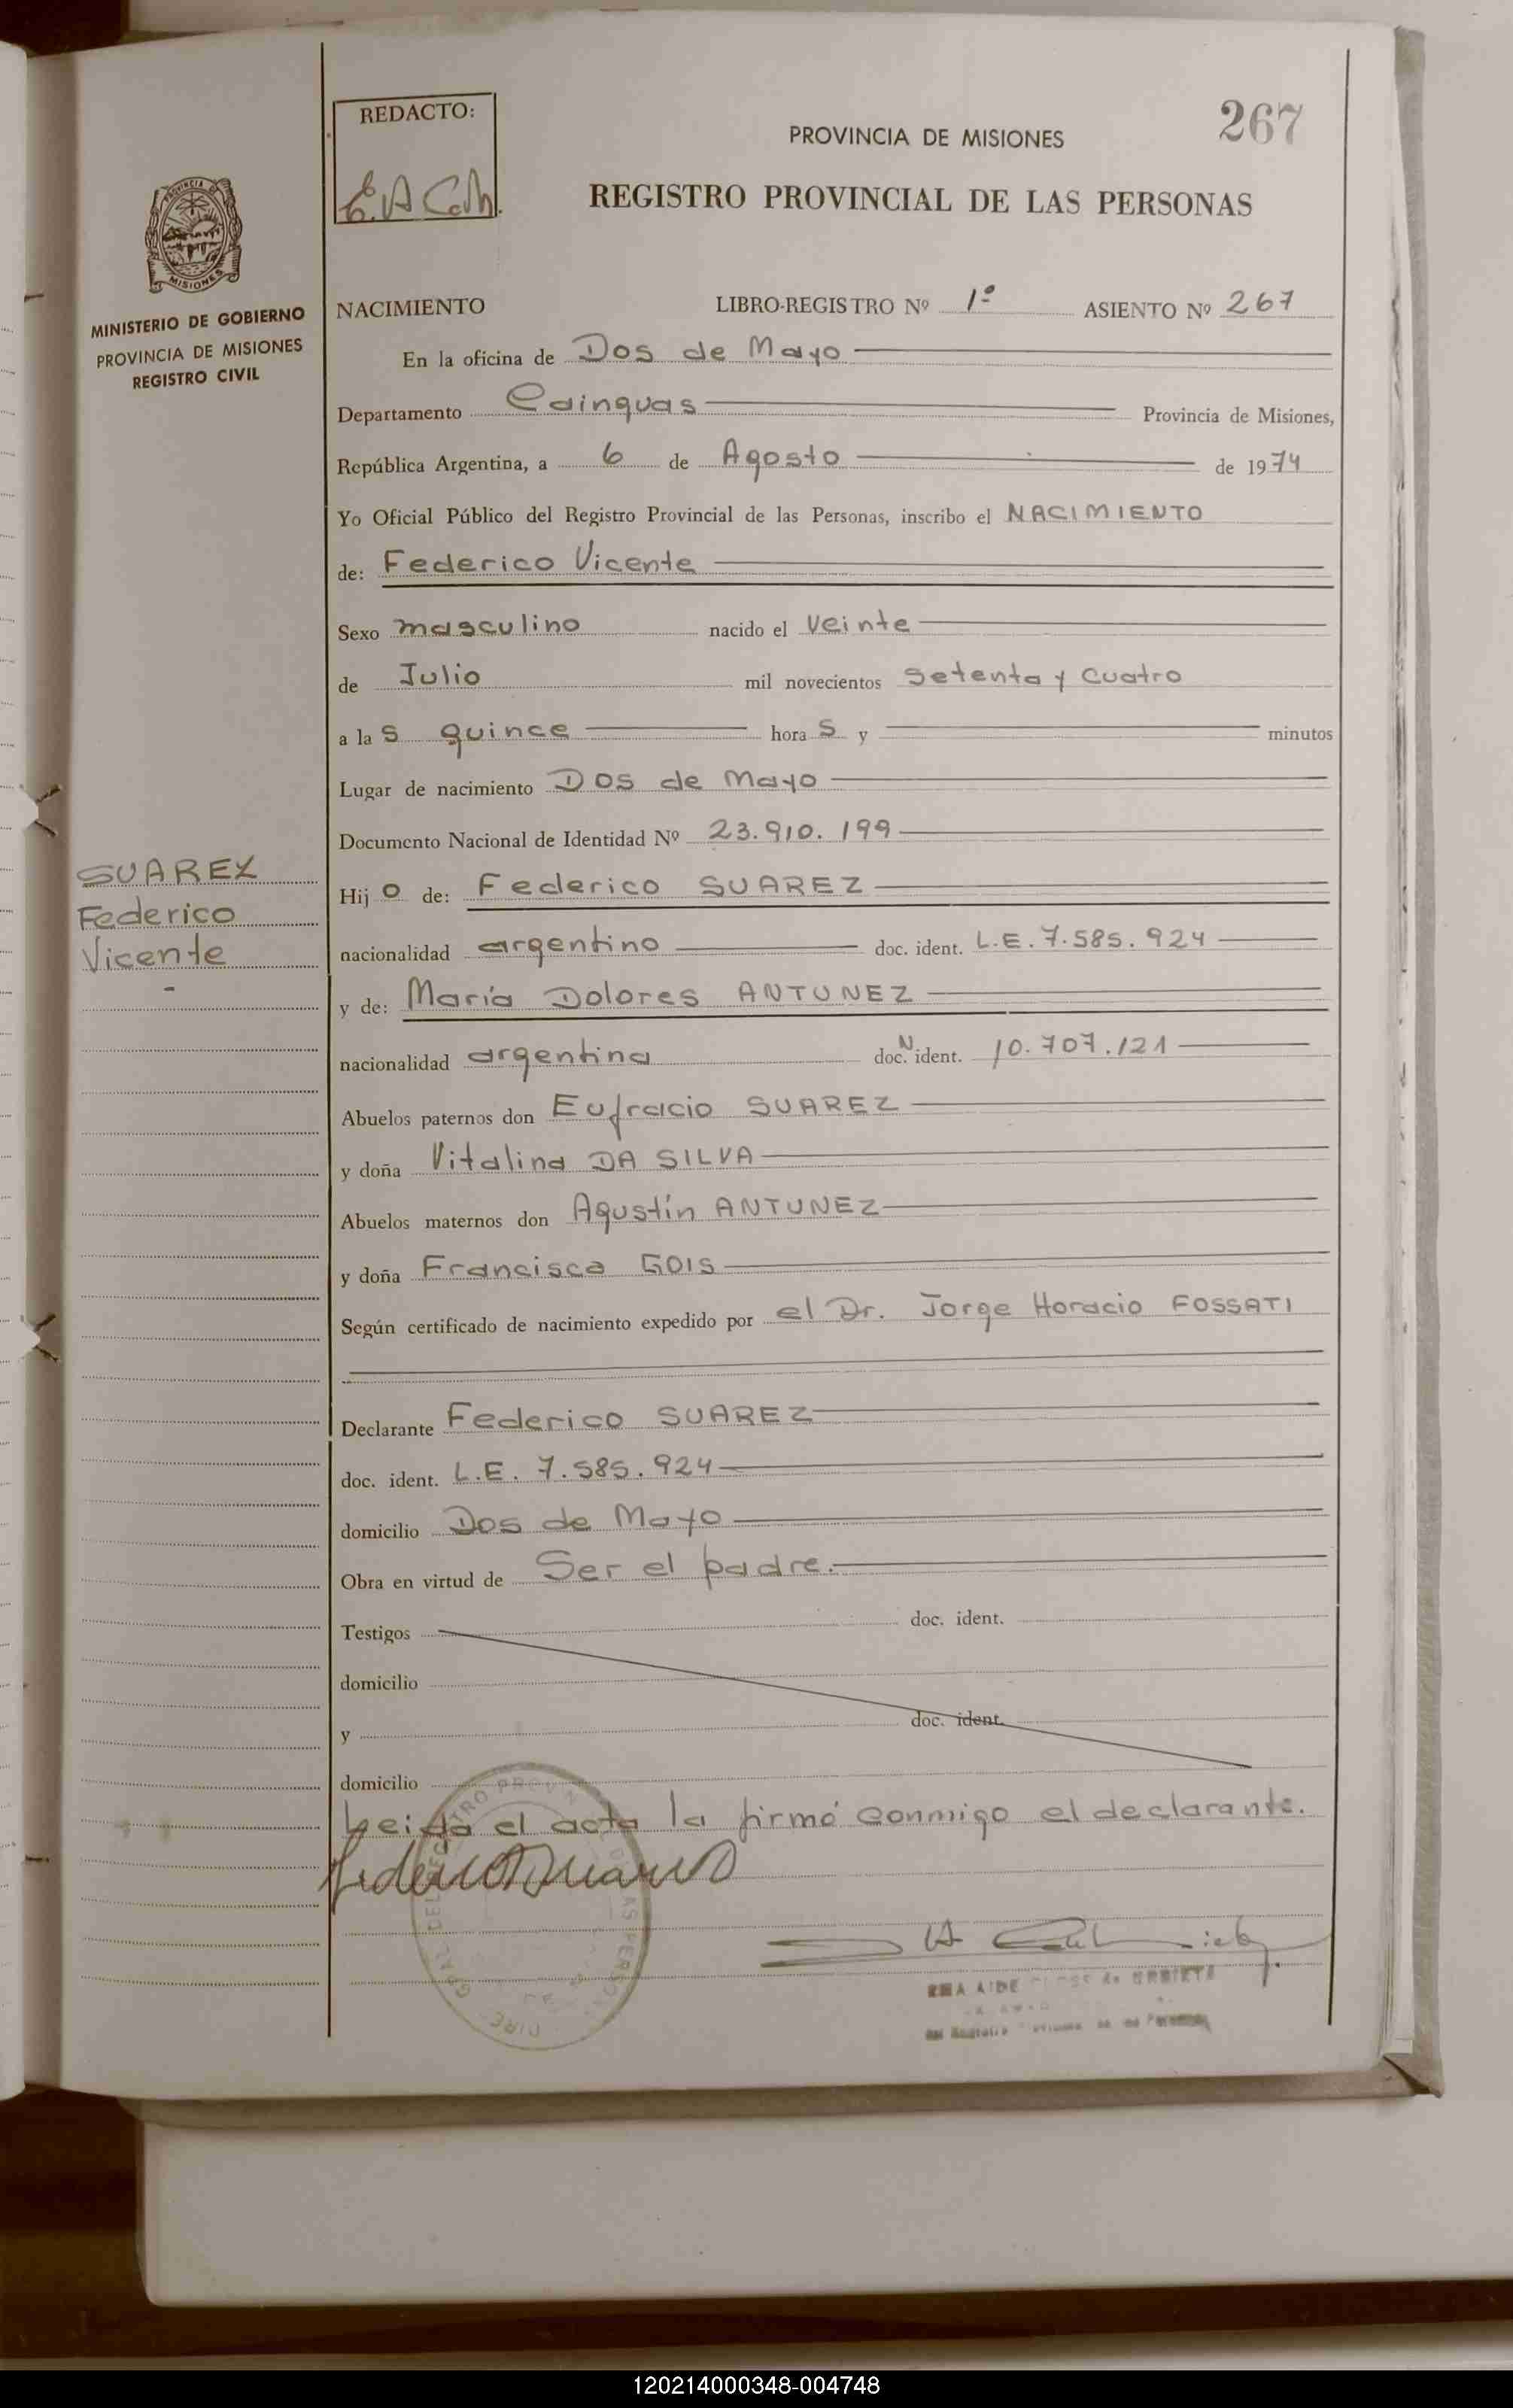 267
REDACTO:
PROVINCIA DE MISIONES
REGISTRO PROVINCIAL DE LAS PERSONAS
PROVINCIA DE
MISIONES
MINISTERIO DE GOBIERNO
PROVINCIA DE MISIONES
REGISTRO CIVIL
NACIMIENTO LIBRO-REGISTRO Nº 1º ASIENTO Nº 267
En la oficina de Dos de Mayo
Departamento Cainguas Provincia de Misiones,
República Argentina, a 6 de Agosto de 1974
Yo Oficial Público del Registro Provincial de las Personas, inscribo el NACIMIENTO
de: Federico Vicente
Sexo masculino nacido el veinte
de Julio mil novecientos setenta y cuatro
a las quince horas y minutos
Lugar de nacimiento Dos de Mayo
Documento Nacional de Identidad Nº 23.910.199
SUAREZ
Federico
Vicente
Hijo de: Federico SUAREZ
nacionalidad argentino doc. ident. L.E. 7.585.924
y de: María Dolores ANTUNEZ
nacionalidad argentina doc. N. ident. 10.707.121
Abuelos paternos don Eufracio SUAREZ
y doña Vitalina DA SILVA
Abuelos maternos don Agustín ANTUNEZ
y doña Francisca GOIS
Según certificado de nacimiento expedido por el Dr. Jorge Horacio FOSSATI
Declarante Federico SUAREZ
doc. ident. L.E. 7.585.924
domicilio Dos de Mayo
Obra en virtud de Ser el padre.
Testigos doc. ident.
domicilio
y doc. ident.
domicilio
Leida el acta la firmó conmigo el declarante.
Federico Suarez
120214000348-004748